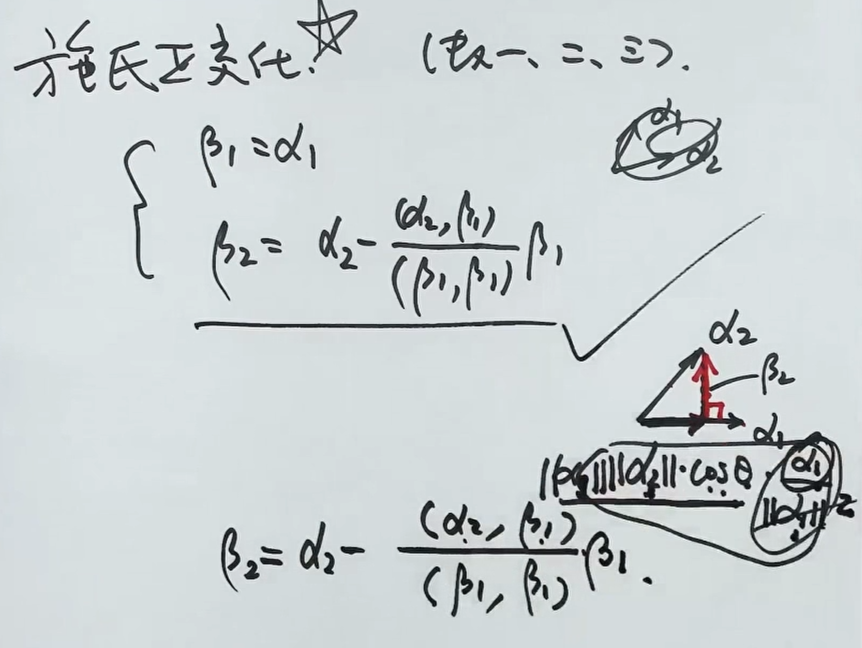 施氏正交化. ☆ (数一、二、三).
β₁=α₁
α₁
α₂
β₂= α₂- (α₂,β₁)/(β₁,β₁) β₁
α₂
β₂
α₁
||α₁||||α₂||·cosθ · α₁/||α₁||²
β₂= α₂- (α₂, β₁)/(β₁, β₁)·β₁.